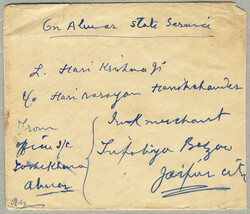 On Alwar State Service
L. Hari Krishna Ji
c/o Hari narayan Harishchander
Ironmerchant
Tripoliya Bazar
Jaipur City
From
Office I/c
Toshakhana
Alwar